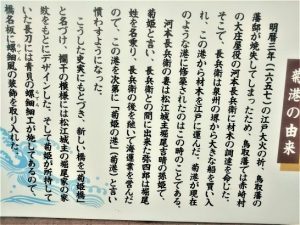 菊港の由来
明暦三年（一六五七）の江戸大火の折、鳥取藩の
藩邸が焼失してしまったため、鳥取藩では赤崎村
の大庄屋役の河本長兵衛に材木の調達を命じた。
そこで、長兵衛は泉州の堺から大きな船を買い入
れ、この港から材木を江戸に運んだ。菊港が現在
のような港に修築されたのはこの時のことである。
河本長兵衛の妻は松江城主堀尾吉晴の孫姫で
菊姫と言い、長兵衛との間に出来た弥四郎は堀尾
姓を名乗り、長兵衛の後を継いで海運業を営んだ
ので、この港を次第に「菊姫の港」（菊港）と言い
慣わすようになった。
こうした史実にもとづき、新しい橋を「菊姫橋」
と名づけ、欄干の模様には松江城主の堀尾家の家
紋をもとにデザインした。そして菊姫が所持して
いた長刀には青貝の螺鈿細工が施してあるので、
橋名板に螺鈿風の装飾を取り入れた。